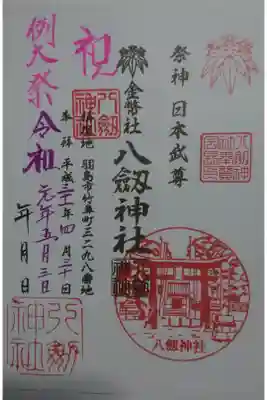 祭神 日本武尊
祝
金幣社
八劔神社
鎮座地 羽島市竹鼻町三二九八番地
奉拝 平成三十一年四月三十日
例大祭
令和元年五月三日
年月日
八劔神社
八劔神社
八劔神社